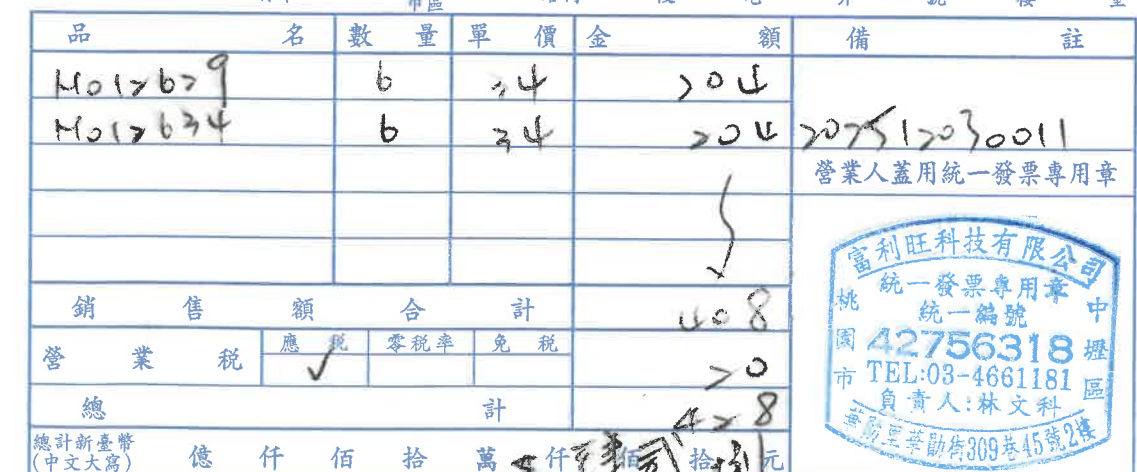 品名 數量 單價 金額 備註
H012629 6 34 204
H012634 6 34 204 202512030011
營業人蓋用統一發票專用章
銷售額合計 408
營業稅 應稅 ✓ 零稅率 免稅 20
總計 428
總計新臺幣
(中文大寫) 億 仟 佰 拾 萬 仟 佰 拾 元
富利旺科技有限公司
統一發票專用章
統一編號
42756318
TEL:03-4661181
負責人:林文科
桃園市
中壢區
華勛里華勛街309巷45號2樓